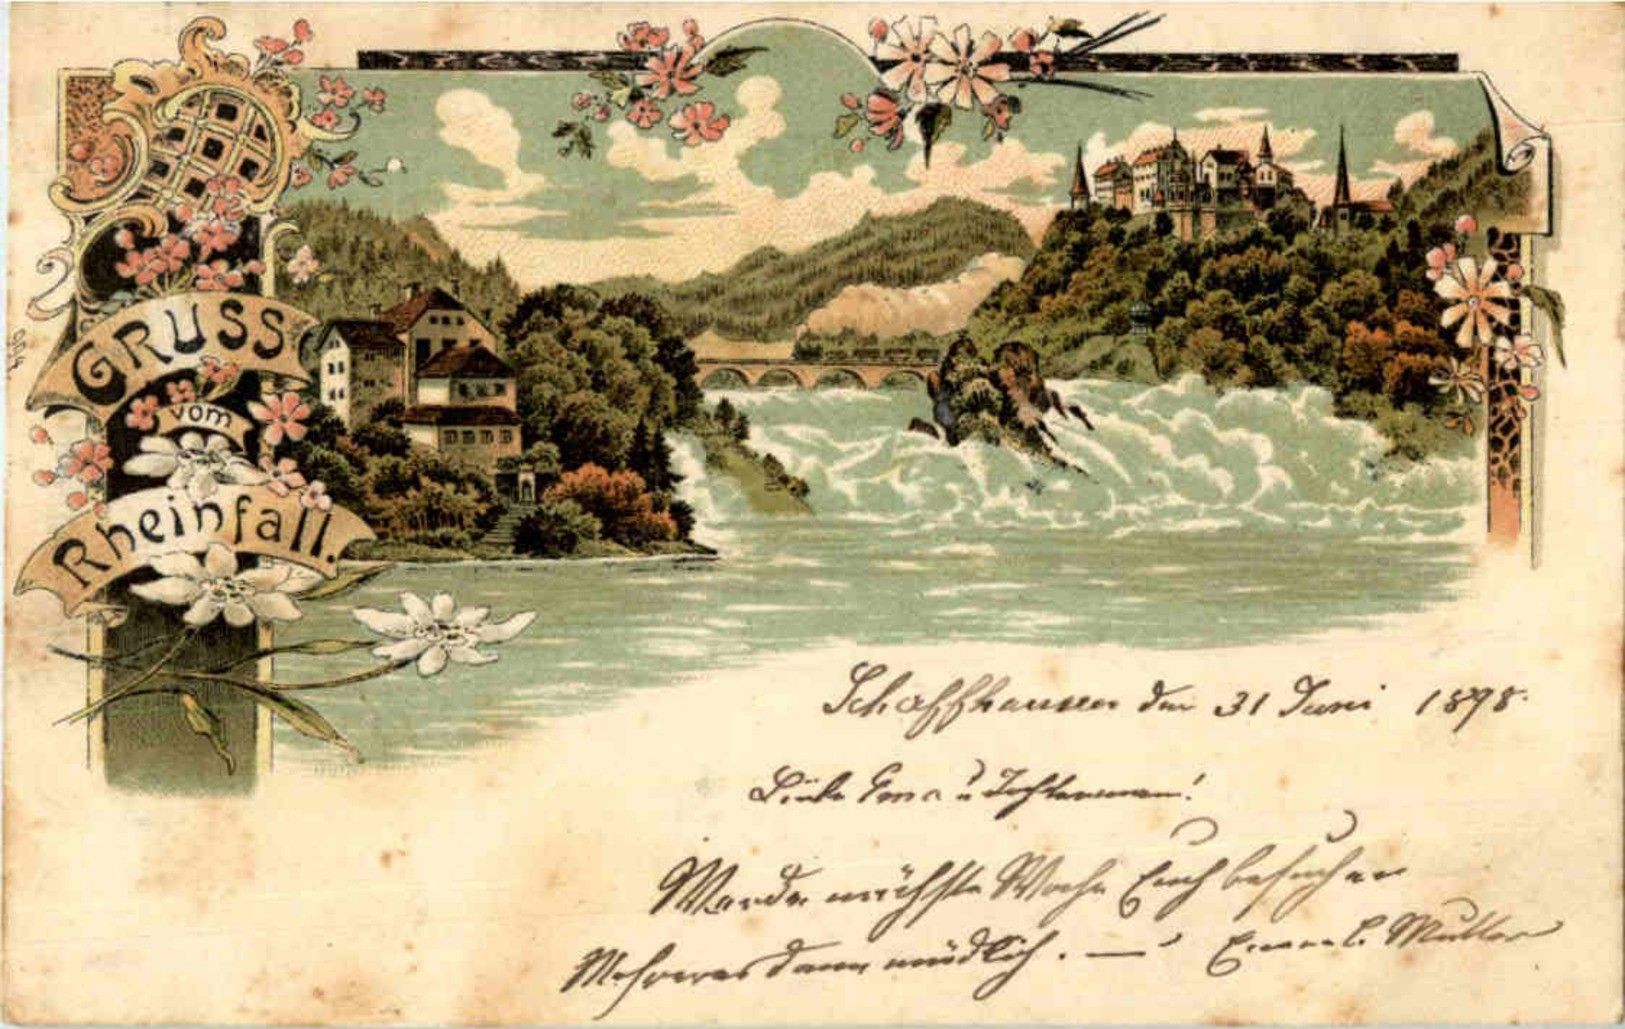 GRUSS
vom
Rheinfall.
Schaffhausen den 31 Juni 1898.
Liebe u
Werde nächste Woche Euch besuchen
Mehreres dann mündlich. — Müller